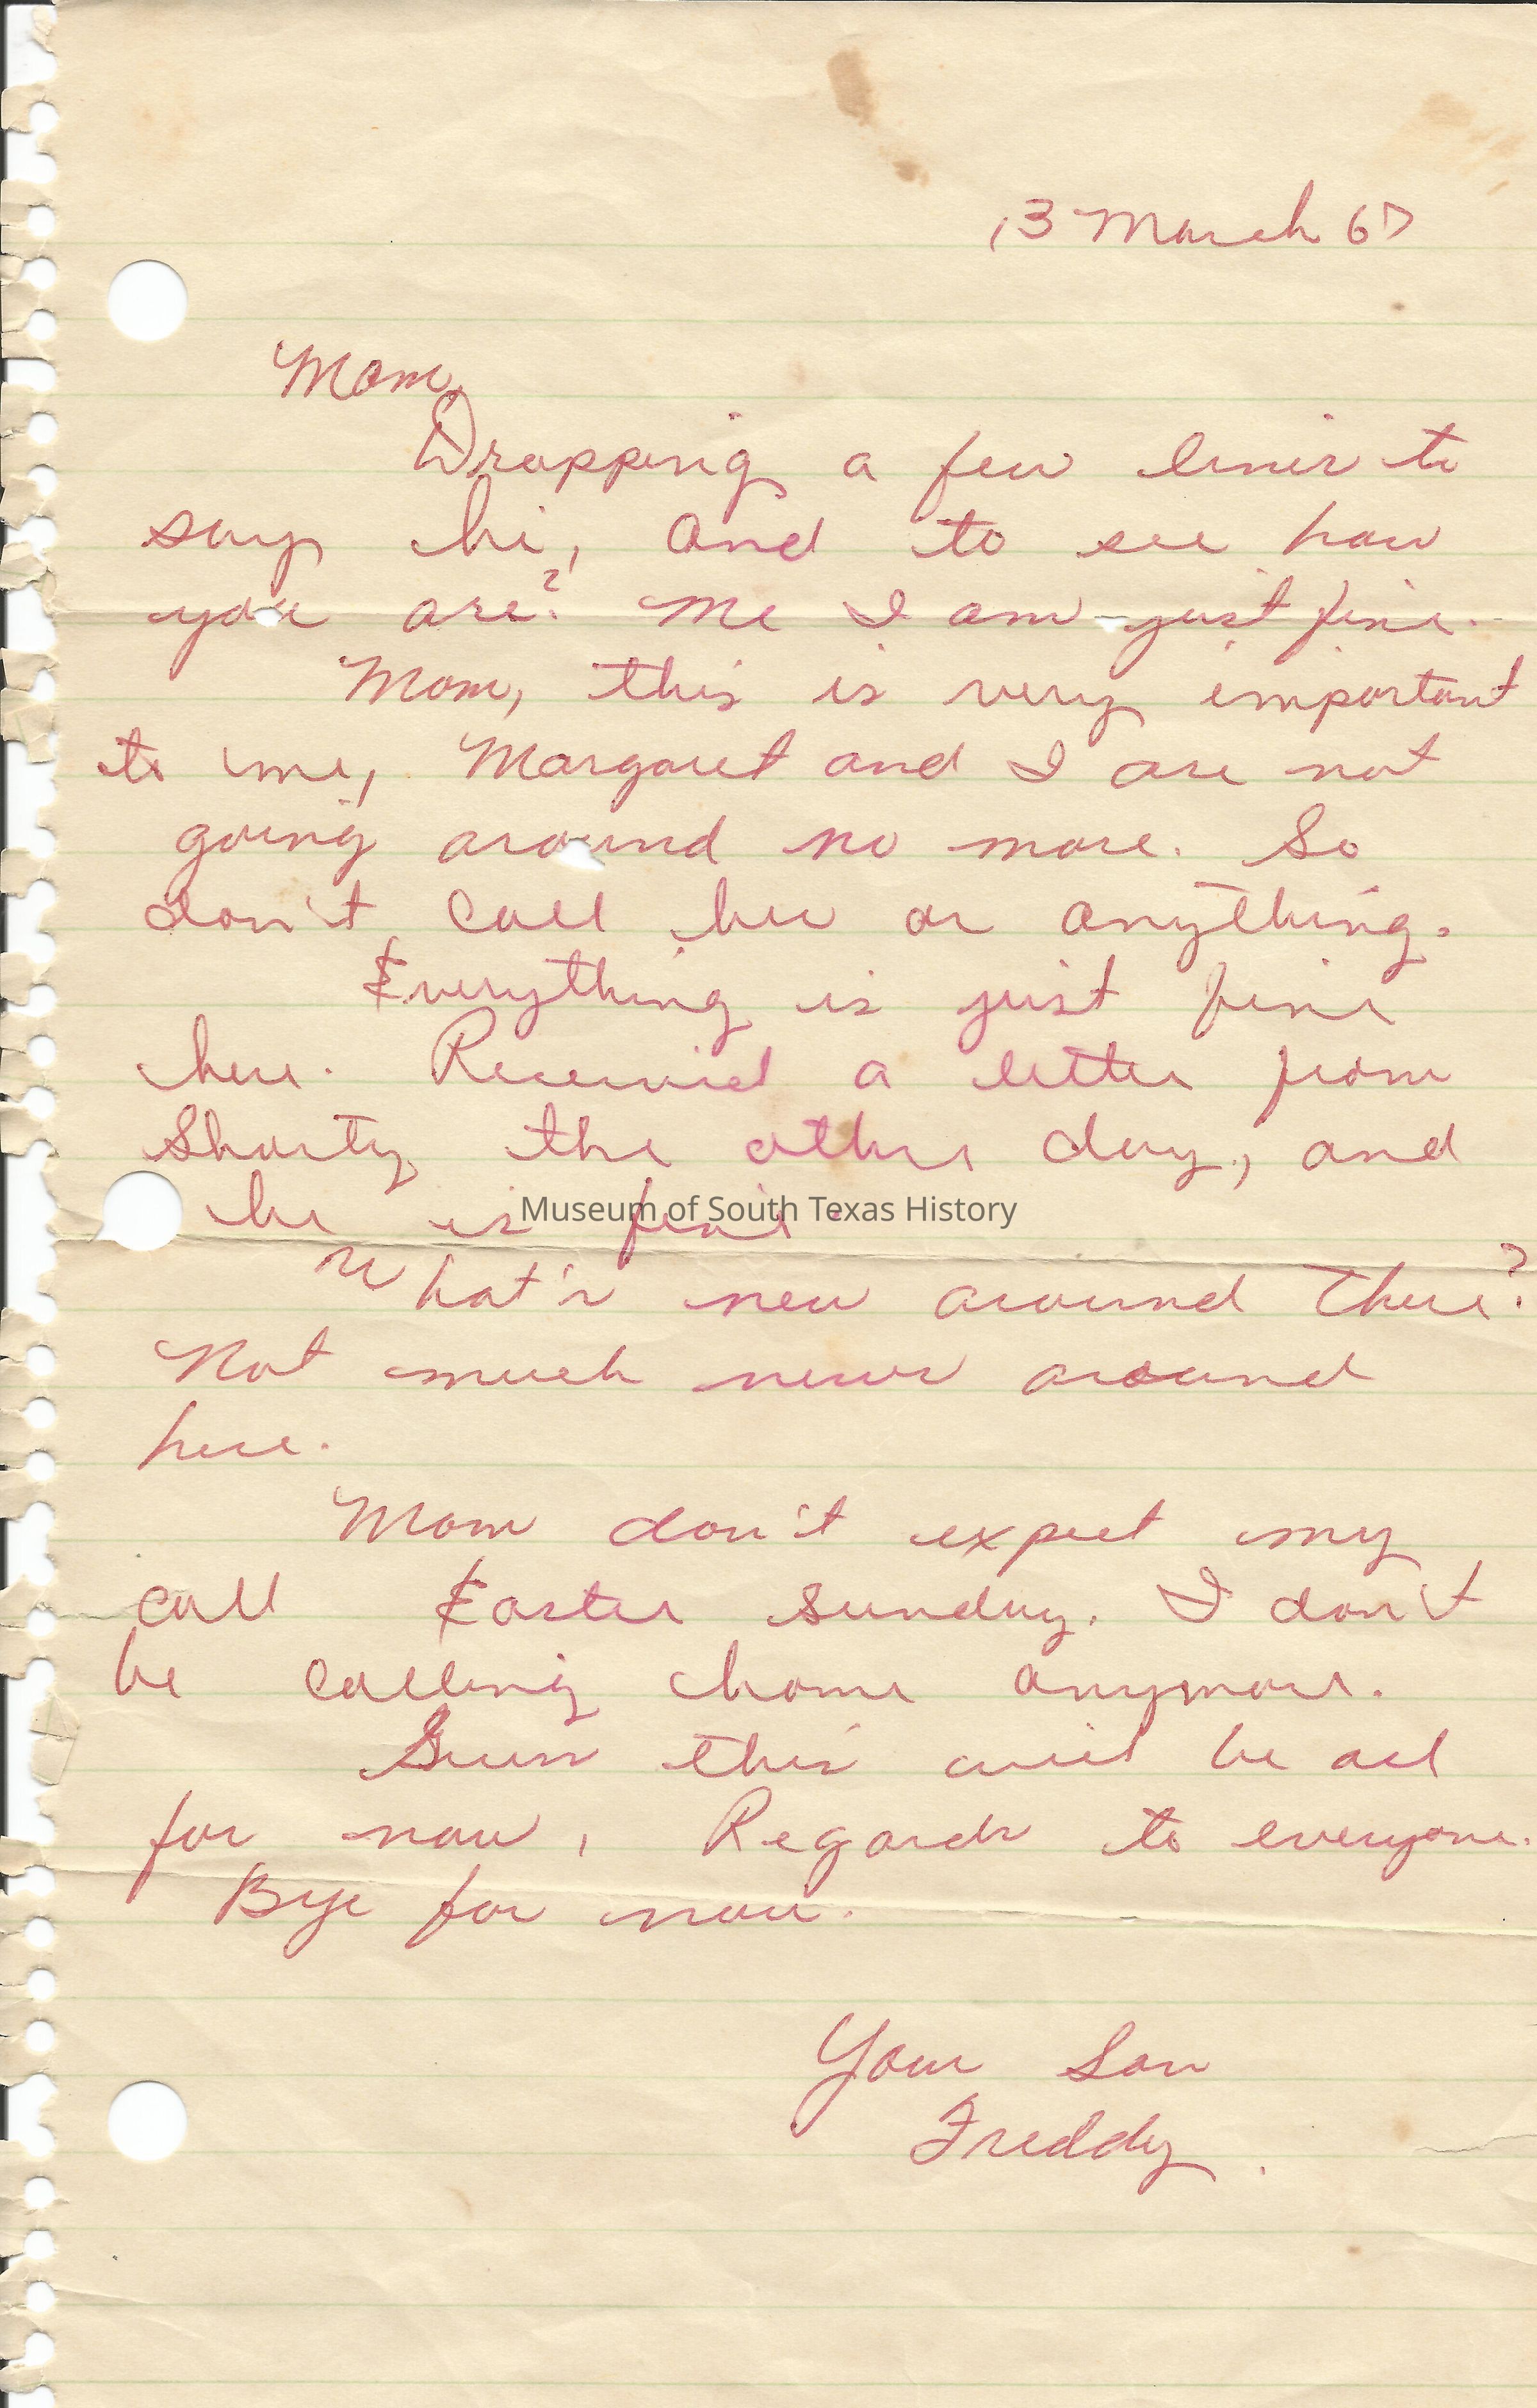 13 March 67
Mom,
Dropping a few lines to
say hi, and to see how
you are? Me I am just fine.
Mom, this is very important
to me, Margaret and I are not
going around no more. So
don't call her or anything.
Everything is just fine
here. Received a letter from
Shorty the other day, and
he is fine.
Museum of South Texas History
What's new around there?
Not much news around
here.
Mom don't expect my
call Easter Sunday. I don't
be calling home anymore.
Guess this will be all
for now, Regards to everyone.
Bye for now.
Your Son
Freddy.